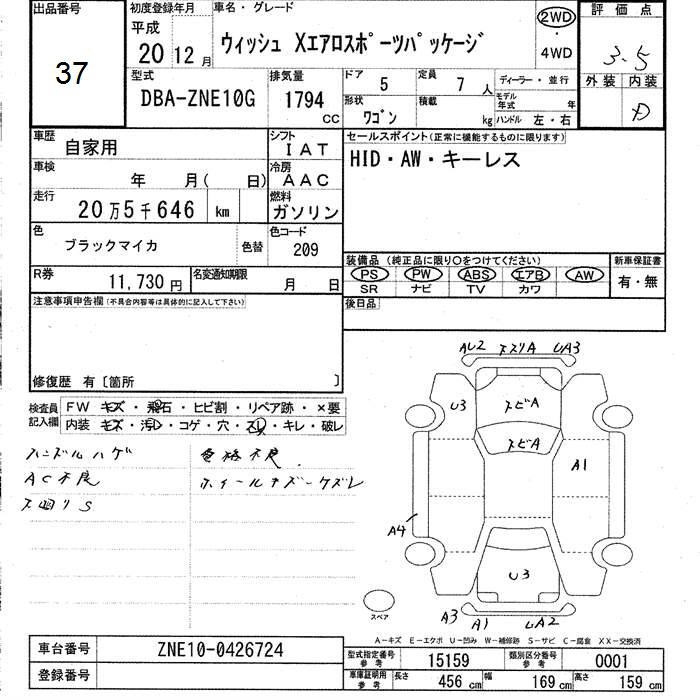 出品番号
37
初度登録年月
平成
20 12 月
車名・グレード
ウィッシュ Xエアロスポーツパッケージ
2WD
4WD
評価点
3.5
外装 内装
D
型式
DBA-ZNE10G
排気量
1794
CC
ドア
5
定員
7 人
形状
ワゴン
積載
kg
ディーラー・並行
モデル年式 年
ハンドル 左・右
車歴
自家用
シフト
IAT
車検
年 月( 日)
冷房
AAC
走行
20 万 5 千 646 km
燃料
ガソリン
色
ブラックマイカ
色替
色コード
209
R券
11,730 円
名変通知期限
月 日
セールスポイント(正常に機能するものに限ります)
HID・AW・キーレス
装備品 (純正品に限り○をつけてください)
PS PW ABS エアB AW
SR ナビ TV カワ
新車保証書
有・無
後日品
注意事項申告欄(不具合内容等は具体的に記入して下さい)
修復歴 有〔箇所 〕
検査員記入欄
FW キズ・飛石・ヒビ割・リペア跡・×要
内装 キズ・汚レ・コゲ・穴・スレ・キレ・破レ
ハンドルハゲ
AC不良
下回りS
電格不良
ホイールキズ・ケズレ
AU2 スリA UA3
U3
トビA
トビA
A1
A4
U3
A3 A1 UA2
スペア
A-キズ E-エクボ U-凹み W-補修跡 S-サビ C-腐食 XX-交換済
車台番号
ZNE10-0426724
登録番号
型式指定番号 参考
15159
類別区分番号 参考
0001
車庫証明用 参考
長さ 456 cm
幅 169 cm
高さ 159 cm